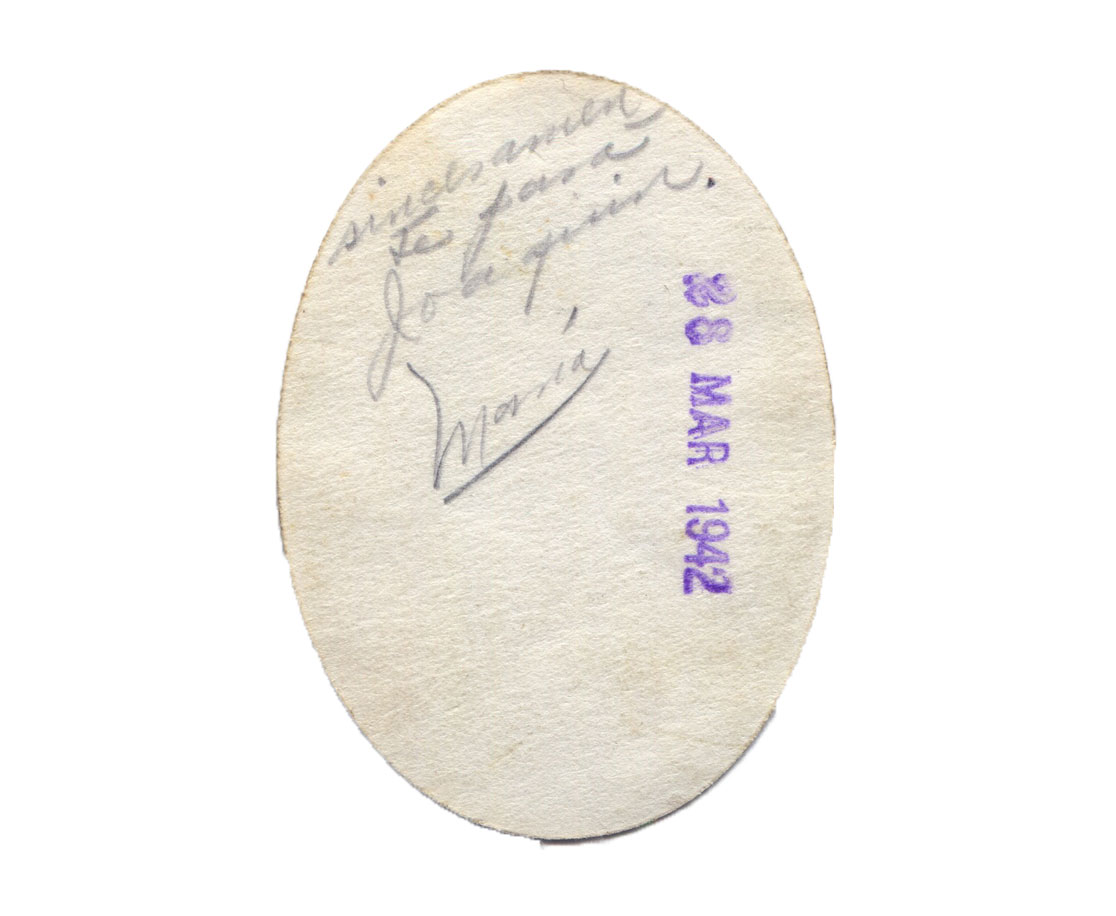 sinceramen
te para
Joaquin.
María
28 MAR 1942